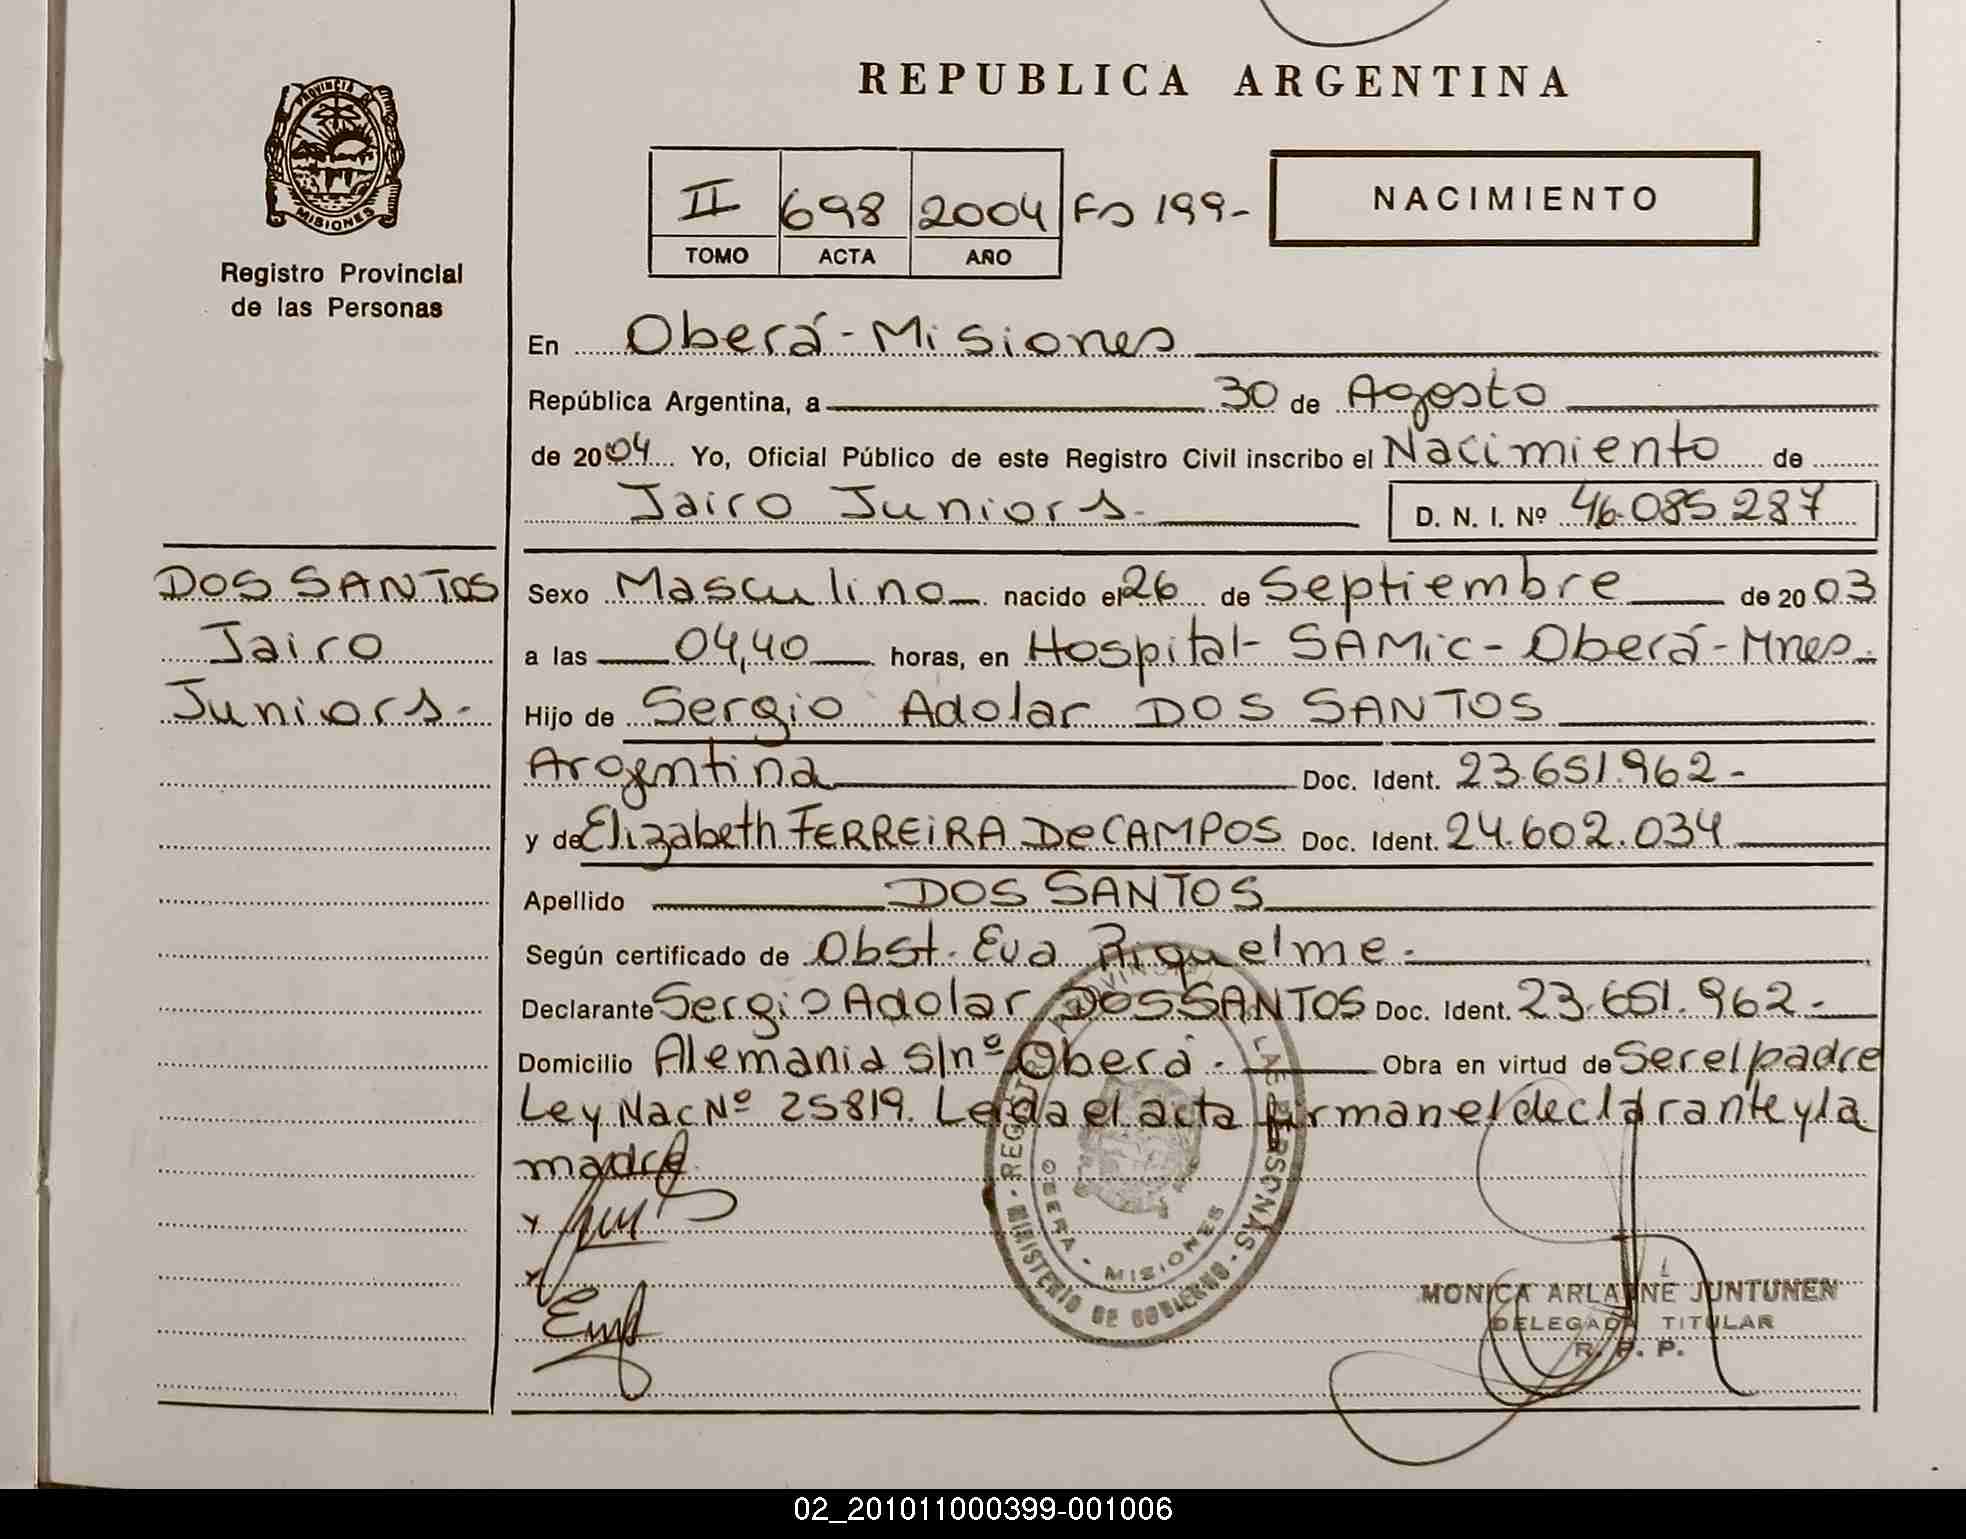 REPUBLICA ARGENTINA
PROVINCIA DE
MISIONES
Registro Provincial
de las Personas
II 698 2004 Fs 199-
TOMO ACTA AÑO
NACIMIENTO
En Oberá - Misiones
República Argentina, a 30 de Agosto
de 2004 Yo, Oficial Público de este Registro Civil inscribo el Nacimiento de
Jairo Juniors.- D. N. I. Nº 46.085.287
DOS SANTOS
Jairo
Juniors.-
Sexo Masculino nacido el 26 de Septiembre de 2003
a las 04,40 horas, en Hospital - SAMic - Oberá - Mnes.
Hijo de Sergio Adolar DOS SANTOS
Argentina Doc. Ident. 23.651.962-
y de Elizabeth FERREIRA De CAMPOS Doc. Ident. 24.602.034
Apellido DOS SANTOS
Según certificado de Obst. Eva Riquelme.-
Declarante Sergio Adolar DOS SANTOS Doc. Ident. 23.651.962.-
Domicilio Alemania s/nº Oberá.- Obra en virtud de Ser el padre
Ley Nac Nº 25819. Leida el acta firman el declarante y la
madre
OBERA - MISIONES
MINISTERIO DE GOBIERNO
MONICA ARLAINE JUNTUNEN
DELEGADA TITULAR
R. P. P.
02_201011000399-001006